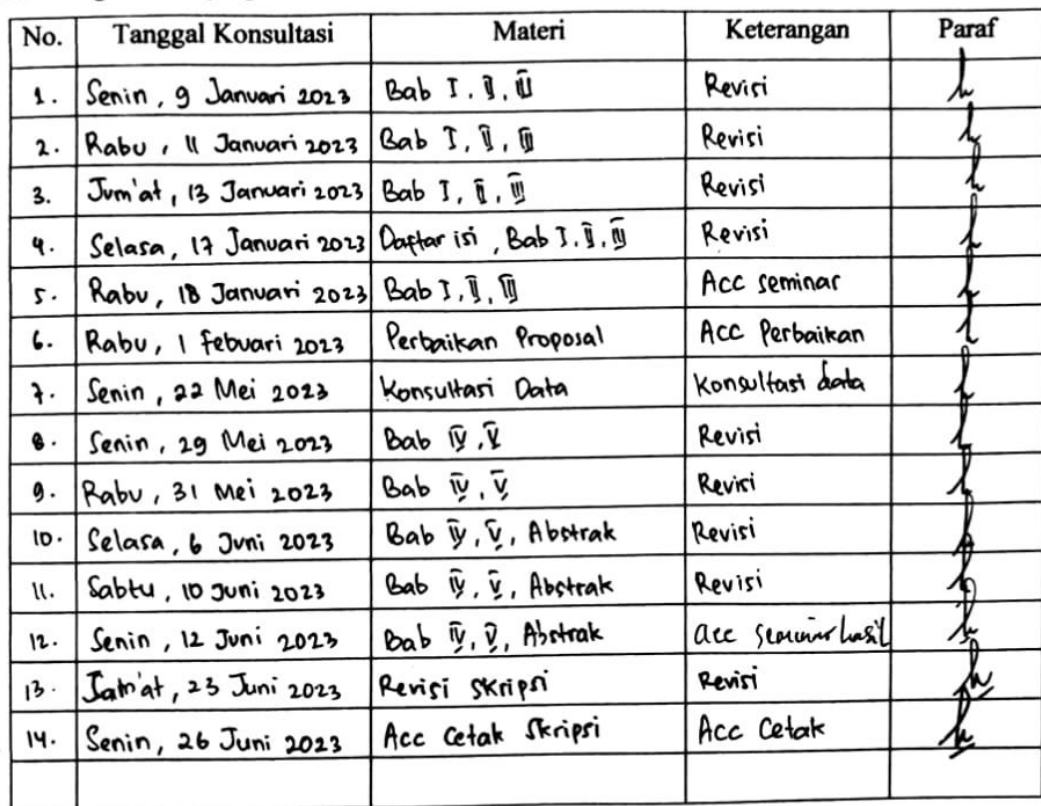 No. Tanggal Konsultasi Materi Keterangan Paraf
1. Senin, 9 Januari 2023 Bab I, II, III Revisi
2. Rabu, 11 Januari 2023 Bab I, II, III Revisi
3. Jum'at, 13 Januari 2023 Bab I, II, III Revisi
4. Selasa, 17 Januari 2023 Daftar isi, Bab I, II, III Revisi
5. Rabu, 18 Januari 2023 Bab I, II, III Acc seminar
6. Rabu, 1 Febuari 2023 Perbaikan Proposal Acc Perbaikan
7. Senin, 22 Mei 2023 Konsultasi Data Konsultasi data
8. Senin, 29 Mei 2023 Bab IV, V Revisi
9. Rabu, 31 Mei 2023 Bab IV, V Revisi
10. Selasa, 6 Juni 2023 Bab IV, V, Abstrak Revisi
11. Sabtu, 10 Juni 2023 Bab IV, V, Abstrak Revisi
12. Senin, 12 Juni 2023 Bab IV, V, Abstrak acc seminar hasil
13. Jum'at, 23 Juni 2023 Revisi Skripsi Revisi
14. Senin, 26 Juni 2023 Acc Cetak Skripsi Acc Cetak